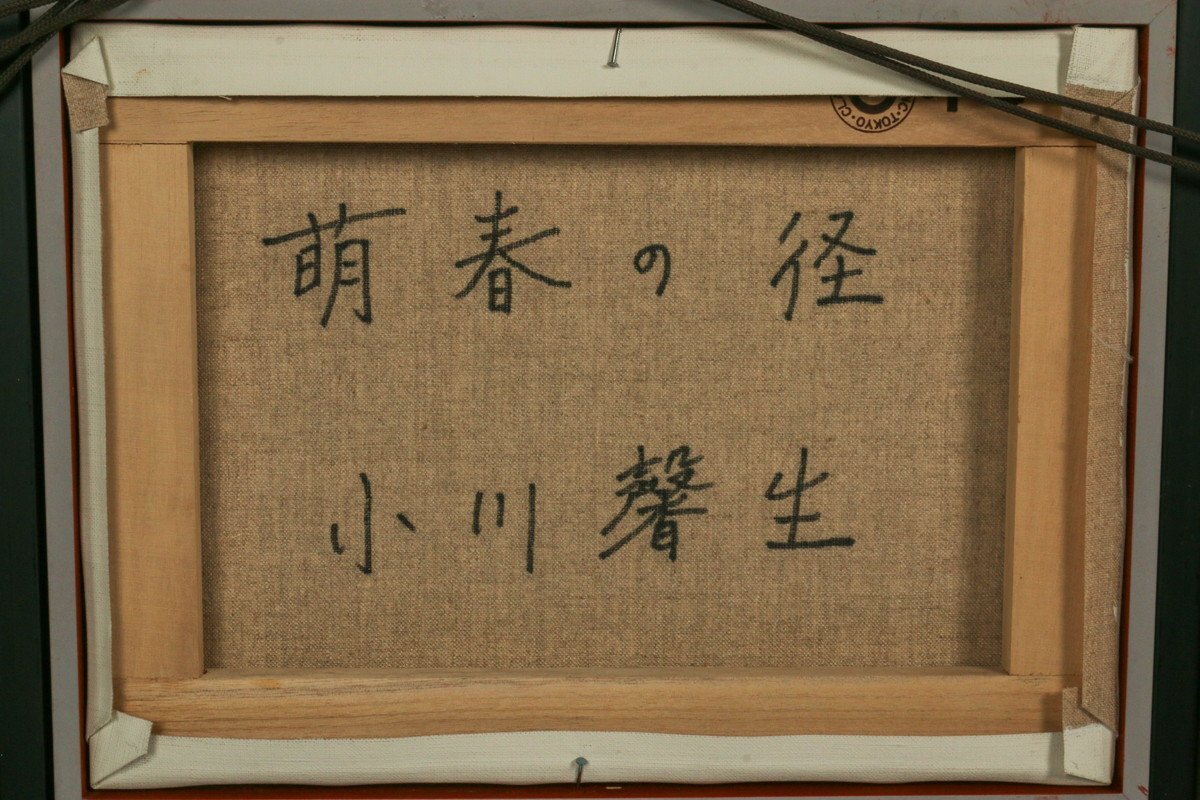 萌春の径
小川馨生